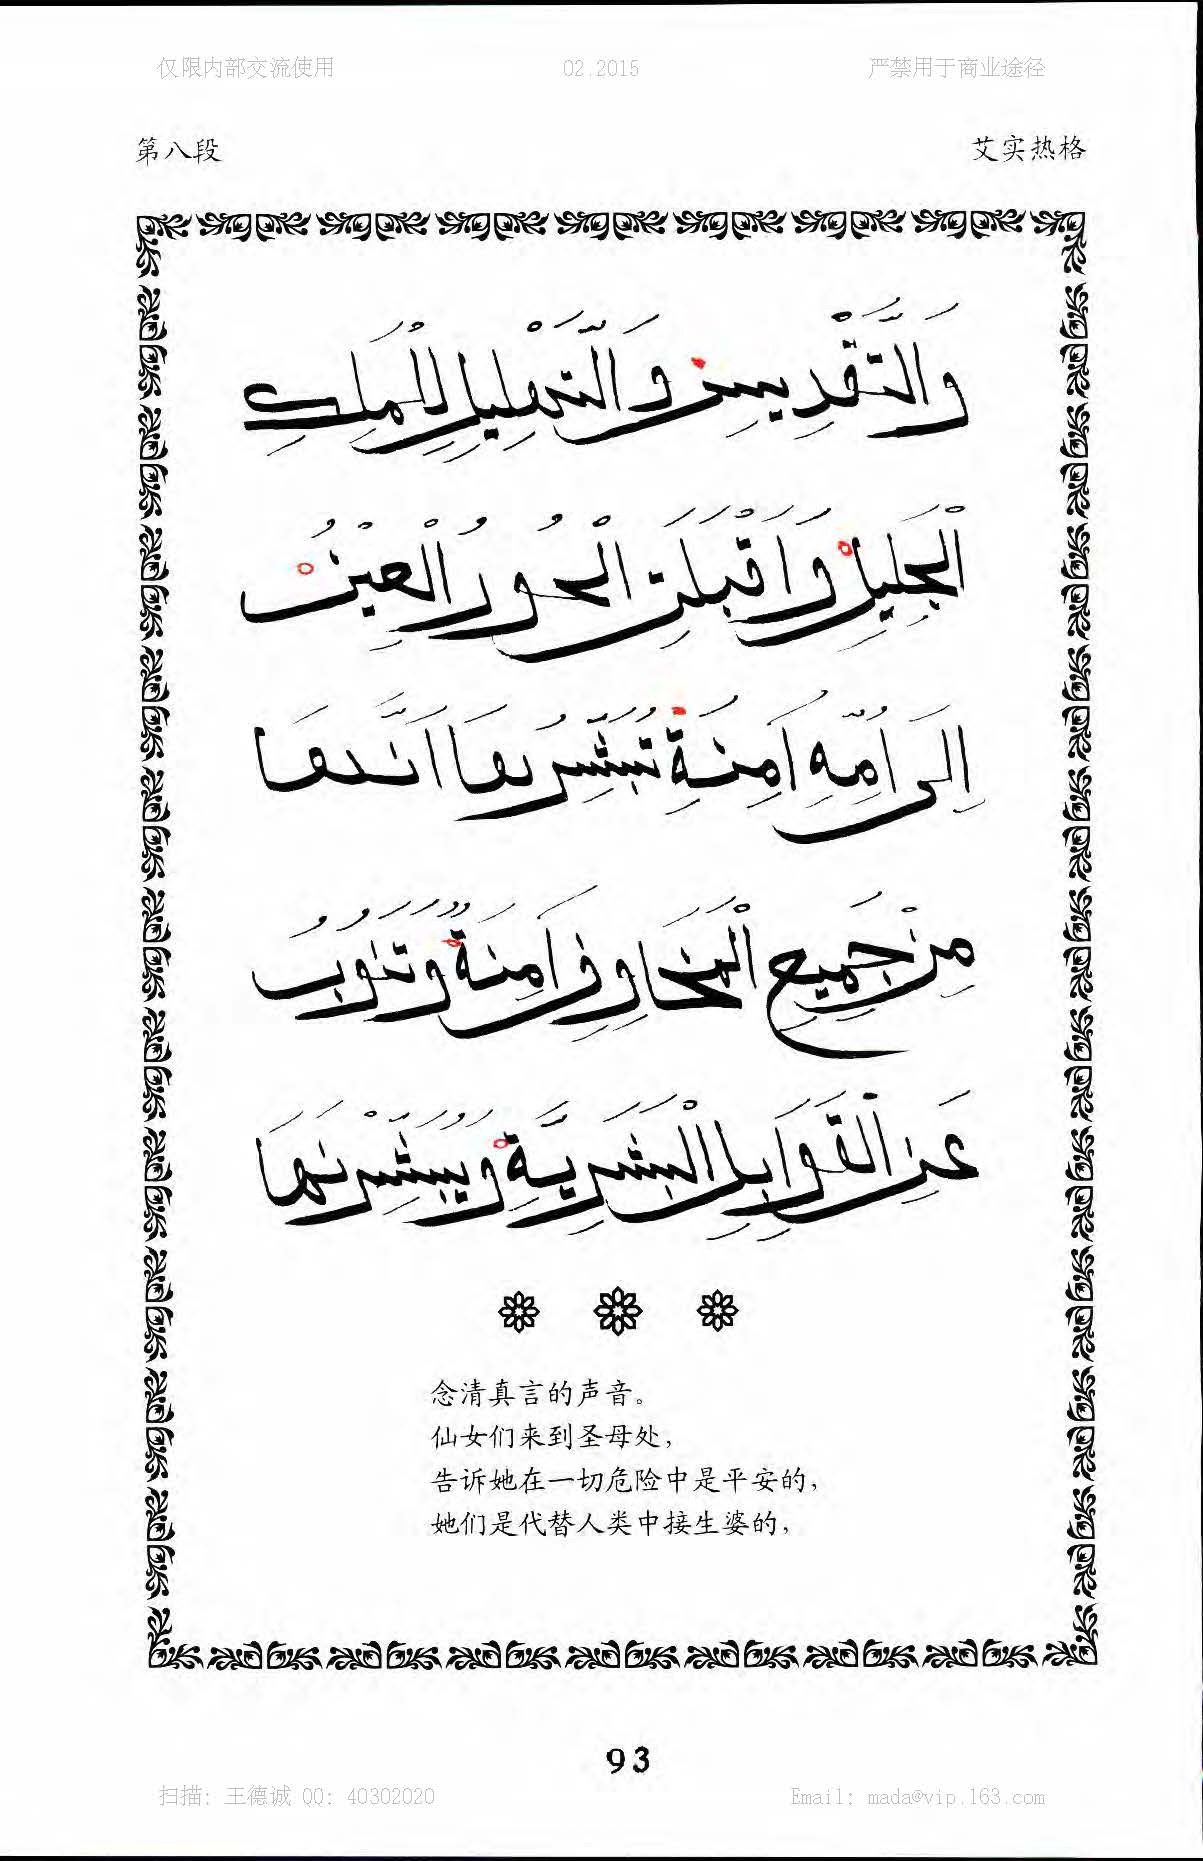 仅限内部交流使用 02.2015 严禁用于商业途径
第八段 艾实热格
وَالتَّقْدِيسِ وَالتَّهْلِيلِ لِلْمَلِكِ
الْجَلِيلِ وَاَقْبَلَتِ الْحُورُ الْعِينُ
اِلَى اُمِّهِ اَمِنَةَ تُبَشِّرُهَا اَنَّهَا
مِنْ جَمِيعِ الْمَخَاوِفِ اَمِنَةٌ وَتَنُوبُ
عَنِ الْقَوَابِلِ الْبَشَرِيَّةِ وَيُبَشِّرْنَهَا
念清真言的声音。
仙女们来到圣母处，
告诉她在一切危险中是平安的，
她们是代替人类中接生婆的，
93
扫描: 王德诚 QQ: 40302020 Email: mada@vip.163.com